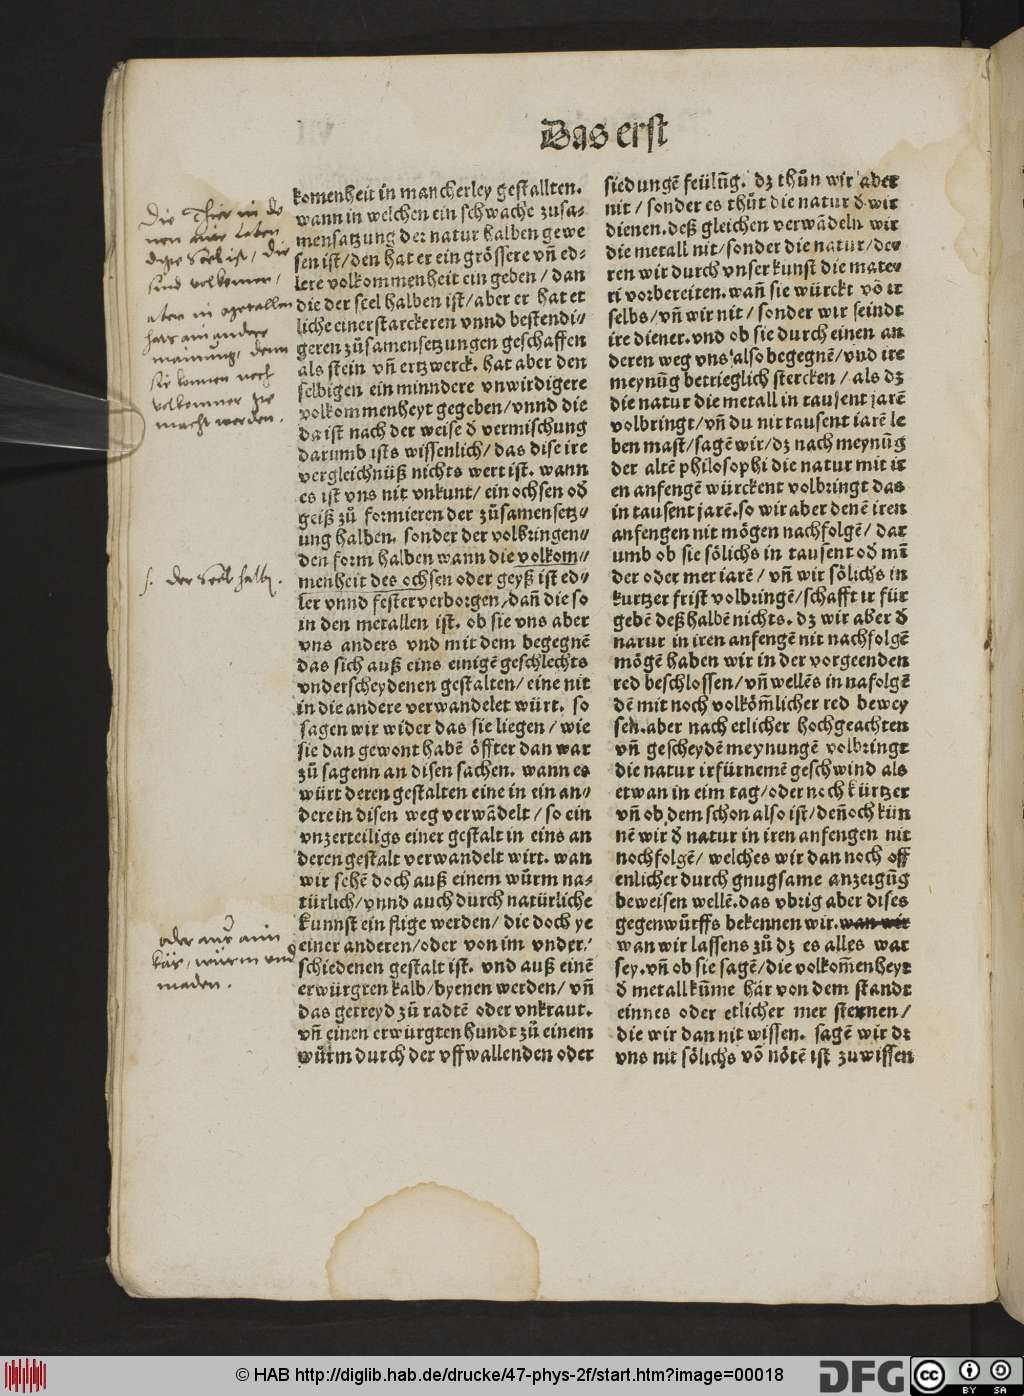 Das erst
komenheit in mancherley gestallten.
wann in welchen ein schwache zusa⸗
mensatzung der natur halben gewe
sen ist/den hat er ein grössere vñ ed⸗
lere volkommenheit ein geben/ dan
die der seel halben ist/aber er hat et
liche einer starckeren vnnd bestendi⸗
geren zůsamensetzungen geschaffen
als stein vñ ertzwerck. hat aber den
selbigen ein minndere vnwirdigere
volkommenheyt gegeben/vnnd die
da ist nach der weise d̄ vermischung
darumb ists wissenlich/das dise ire
vergleichnüß nichts wert ist. wann
es ist vns nit vnkunt/ein ochsen od̄
geiß zů formieren der zůsamensetz⸗
ung halben. sonder der volbringen⸗
den form halben wann die volkom⸗
menheit des ochsen oder geyß ist ed⸗
ler vnnd fester verborgen/dañ die so
in den metallen ist. ob sie vns aber
vns anders vnd mit dem begegnē
das sich auß eins einigē geschlechts
vnderscheydenen gestalten/eine nit
in die andere verwandelet würt. so
sagen wir wider das sie liegen/ wie
sie dan gewont habē öffter dan war
zů sagenn an disen sachen. wann es
würt deren gestalten eine in ein an⸗
dere in disen weg verwādelt/ so ein
vnzerteiligs einer gestalt in eins an
deren gestalt verwandelt wirt. wan
wir sehē doch auß einem wůrm na⸗
türlich/vnnd auch durch natürliche
kunnst ein flige werden/ die doch ye
einer anderen/oder von im vnder⸗
schiedenen gestalt ist. vnd auß einē
erwürgten kalb/byenen werden/ vñ
das getreyd zů radtē oder vnkraut.
vñ einen erwürgten hundt zů einem
wůrm durch der vffwallenden oder
siedungē feülũg. dz thůn wir aber
nit/ sonder es thůt die natur d̄ wir
dienen. deß gleichen verwādeln wir
die metall nit/sonder die natur/de⸗
ren wir durch vnser kunst die mate⸗
ri vorbereiten. wañ sie würckt vō ir
selbs/vñ wir nit/ sonder wir seindt
ire diener. vnd ob sie durch einen an
deren weg vns also begegnē/vnd ire
meynũg betrieglich stercken/ als dz
die natur die metall in tausent jarē
volbringt/vñ du nit tausent iarē le
ben mast/sagē wir/dz nach meynũg
der altē philosophi die natur mit ir
en anfengē würckent volbringt das
in tausent jarē. so wir aber denē iren
anfengen nit mögen nachfolgē/ dar
umb ob sie sölichs in tausent od̄ mī
der oder mer iarē/ vñ wir sölichs in
kurtzer frist volbringē/schafft ir für
gebē deß halbē nichts. dz wir aber d̄
natur in iren anfengē nit nachfolgē
mögē haben wir in der vorgeenden
red beschlossen/vñ wellēs in nafolgē
dē mit noch volköm̄licher red bewey
sen. aber nach etlicher hochgeachten
vñ gescheydē meynungē volbringt
die natur ir fürnemē geschwind als
etwan in eim tag/oder noch kürtzer
vñ ob dem schon also ist/deñoch kün
nē wir d̄ natur in iren anfengen nit
nochfolgē/ welches wir dan noch off
enlicher durch gnugsame anzeigũg
beweisen wellē. das vbrig aber dises
gegenwürffs bekennen wir. wan wir
wan wir lassens zů dz es alles war
sey. vñ ob sie sagē/die volkom̄enheyt
d̄ metall kũme här von dem standt
einnes oder etlicher mer sternen/
die wir dan nit wissen. sagē wir dz
vns nit sölichs vō nötē ist zu wissen
Die Thier in de
nen eine Leben
dige Seel ist/ die
sind volkomer/
aber in metallen
hats ain andere
mainung, denn
sie konnen noch
volkomner ge
macht werden.
s. der Seel halb.
oder aus aim
käs, würm und
maden.
© HAB http://diglib.hab.de/drucke/47-phys-2f/start.htm?image=00018
DFG
cc
BY SA